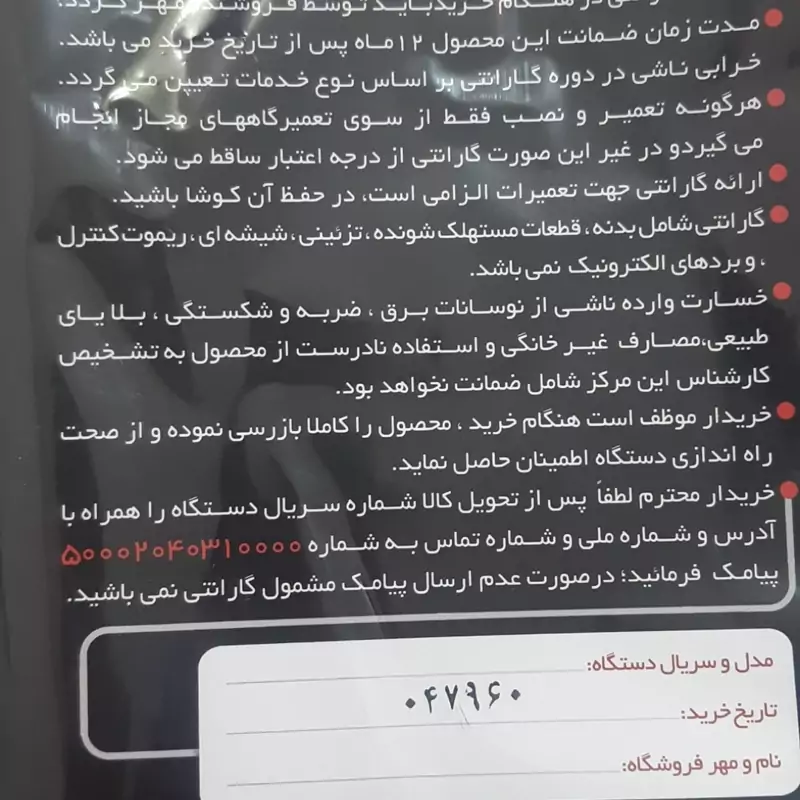 در هنگام خرید باید توسط فروشنده مهر گردد.
مدت زمان ضمانت این محصول ۱۲ماه پس از تاریخ خرید می باشد.
خرابی ناشی در دوره گارانتی بر اساس نوع خدمات تعیین می گردد.
هرگونه تعمیر و نصب فقط از سوی تعمیرگاههای مجاز انجام
می گیردو در غیر این صورت گارانتی از درجه اعتبار ساقط می شود.
ارائه گارانتی جهت تعمیرات الزامی است، در حفظ آن کوشا باشید.
گارانتی شامل بدنه، قطعات مستهلک شونده، تزئینی، شیشه ای، ریموت کنترل
، و بردهای الکترونیک نمی باشد.
خسارت وارده ناشی از نوسانات برق ، ضربه و شکستگی ، بلایای
طبیعی،مصارف غیر خانگی و استفاده نادرست از محصول به تشخیص
کارشناس این مرکز شامل ضمانت نخواهد بود.
خریدار موظف است هنگام خرید ، محصول را کاملا بازرسی نموده و از صحت
راه اندازی دستگاه اطمینان حاصل نماید.
خریدار محترم لطفاً پس از تحویل کالا شماره سریال دستگاه را همراه با
آدرس و شماره ملی و شماره تماس به شماره ۵۰۰۰۲۰۴۰۳۱۰۰۰۰
پیامک فرمائید؛ درصورت عدم ارسال پیامک مشمول گارانتی نمی باشید.
مدل و سریال دستگاه:
۰۴۷۹۶۰
تاریخ خرید:
نام و مهر فروشگاه: